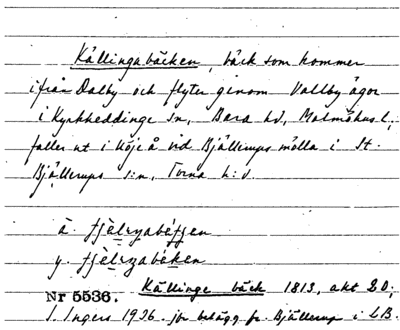 Källingabäcken, bäck som kommer
ifrån Dalby och flyter genom Vallby ägor
i Kyrkheddinge sn, Bara hd, Malmöhus l,
faller ut i Höje å vid Bjällerups mölla i St.
Bjällerups s:n, Torna h:d.
ä.
y.
Nr 5536. Källinge bäck 1813, akt 20;
I. Ingers 1936. jfr belägg fr. Bjällerup i LB.